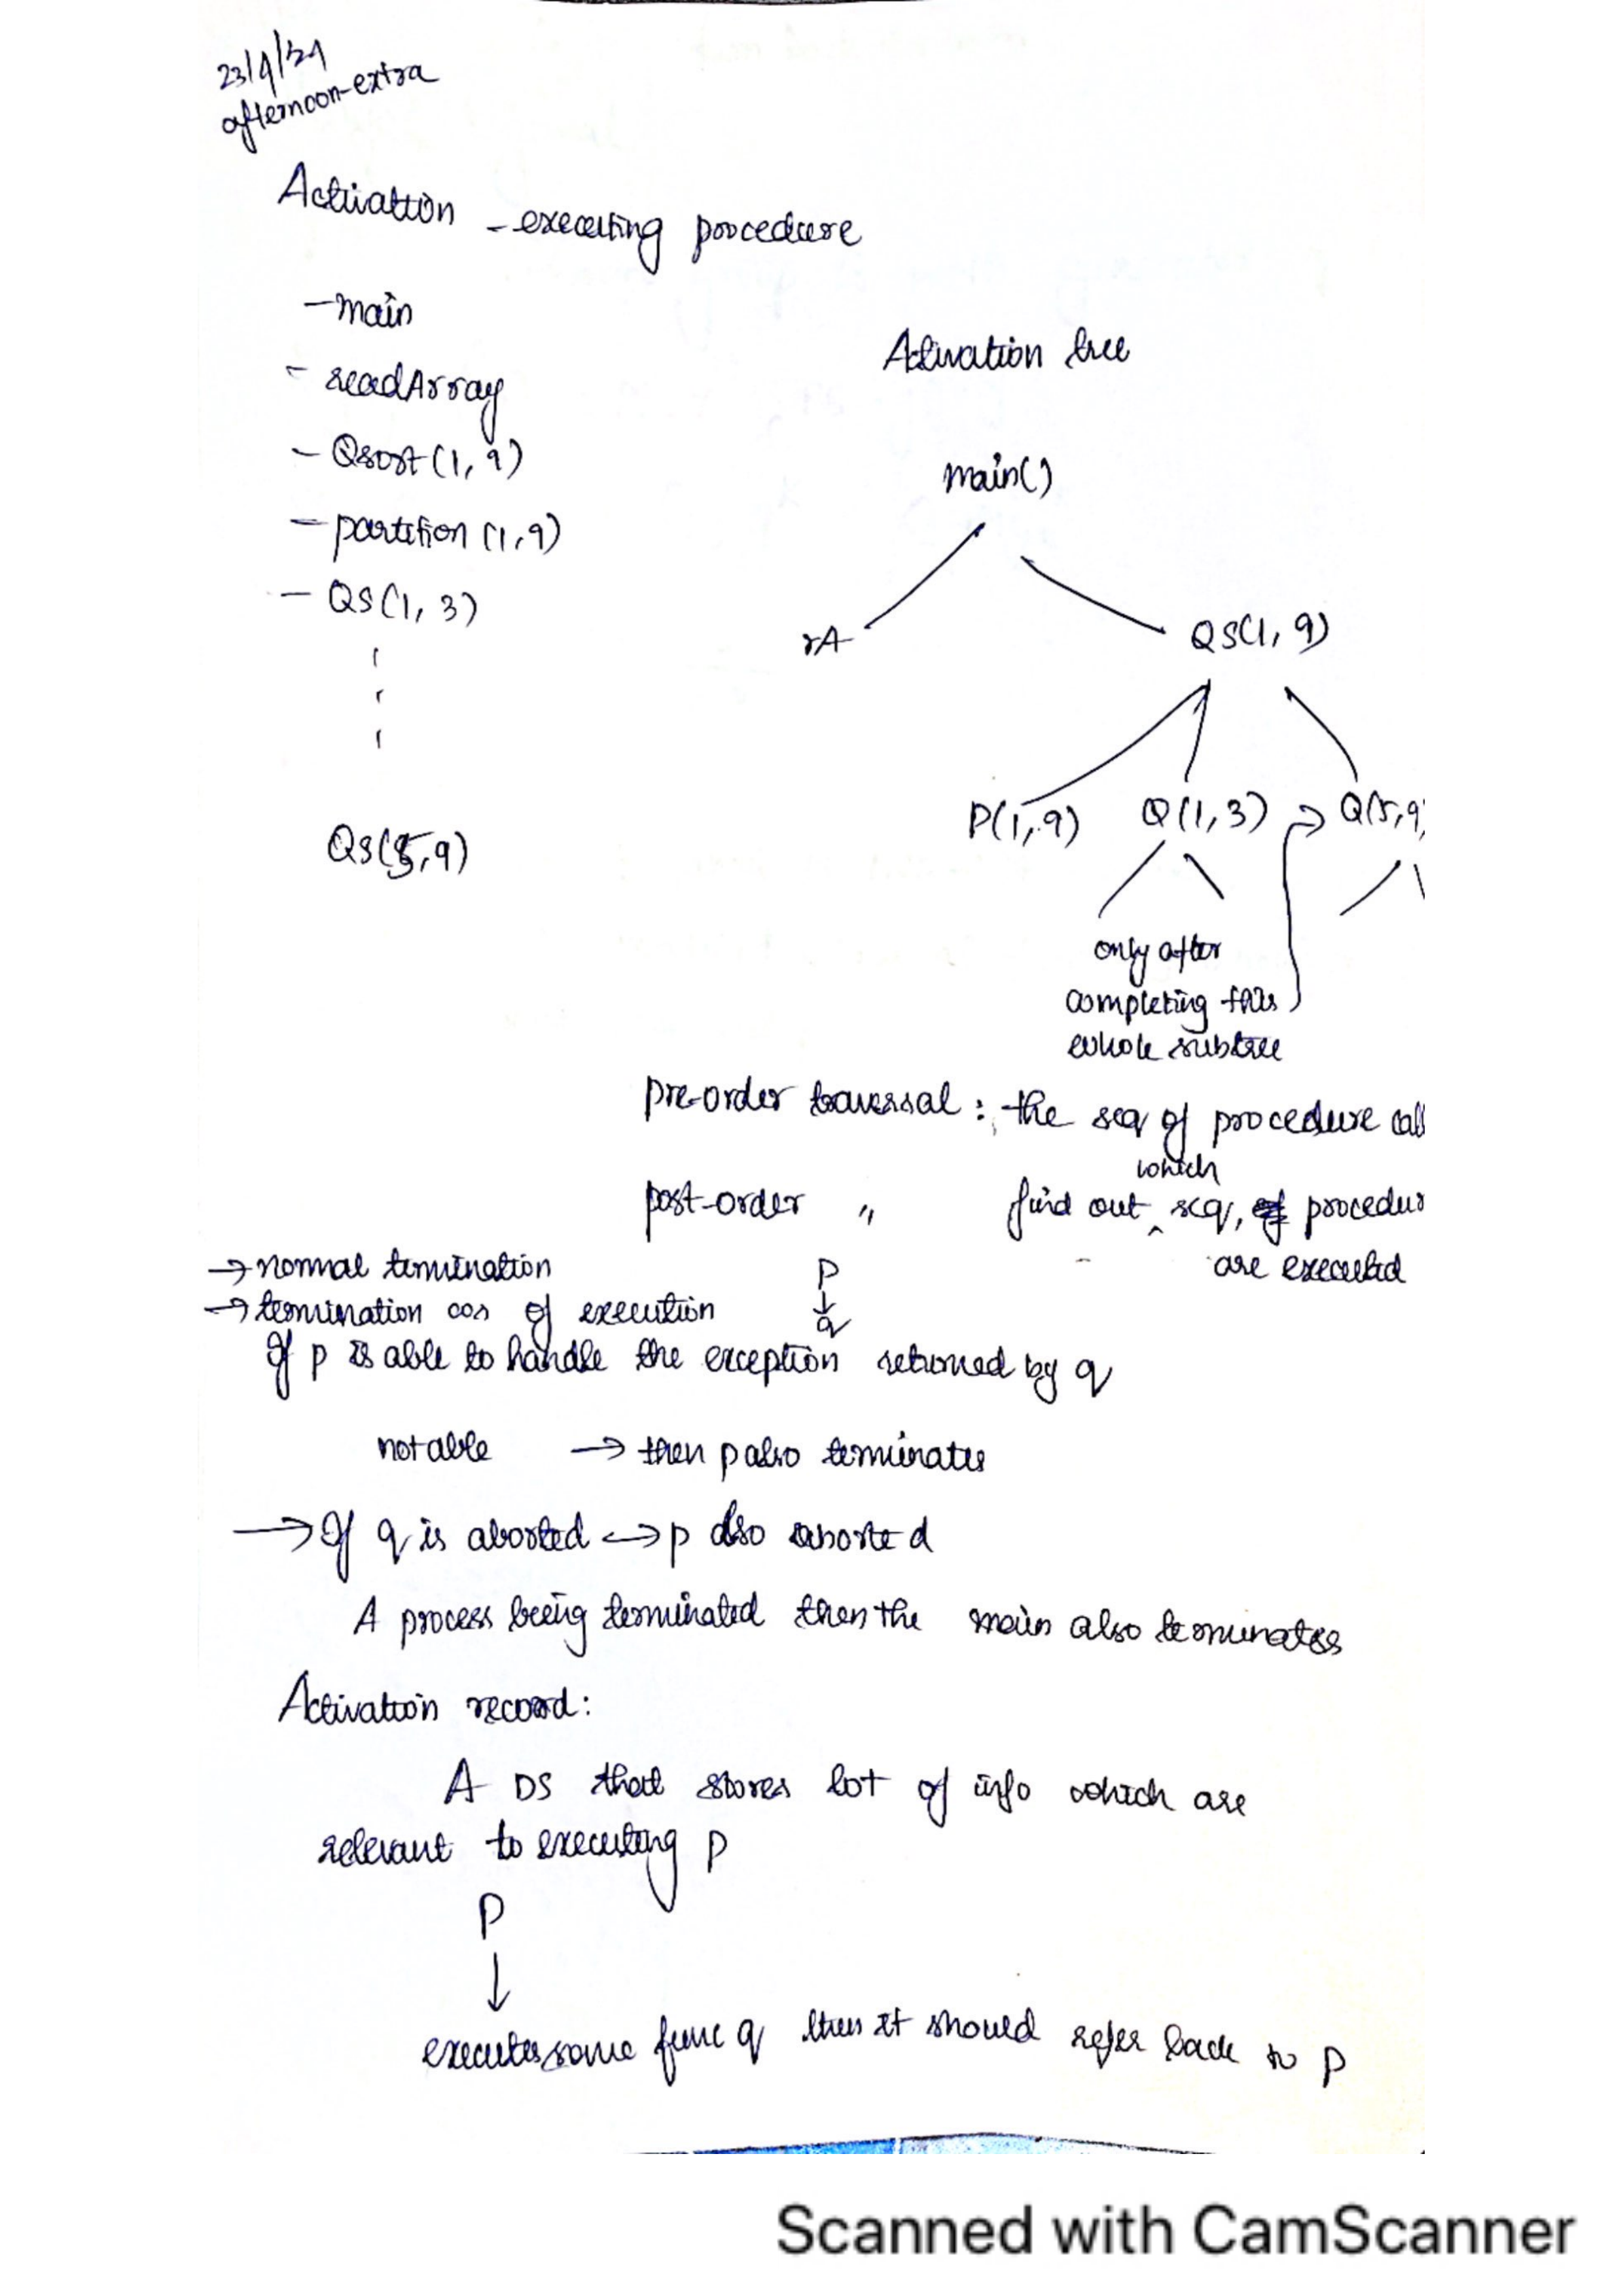 23/4/24
afternoon-extra
Activation - executing procedure
- main
- readArray
- Qsort (1, 9)
- partition (1,9)
- QS(1, 3)
QS(5,9)
Activation tree
main()
rA QS(1, 9)
P(1, 9) Q(1,3) Q(5,9
only after
completing this
whole subtree
pre-order traversal : the seq of procedure call
which
post-order " find out ^ seq, of procedur
are executed
→ normal termination p
→ termination cos of execution ↓
q
If p is able to handle the exception returned by q
not able → then p also terminates
→ If q is aborted ↔ p also aborted
A process being terminated then the main also terminates
Activation record:
A DS that stores lot of info which are
relevant to executing p
P
↓
executes some func q then it should refer back to p
Scanned with CamScanner